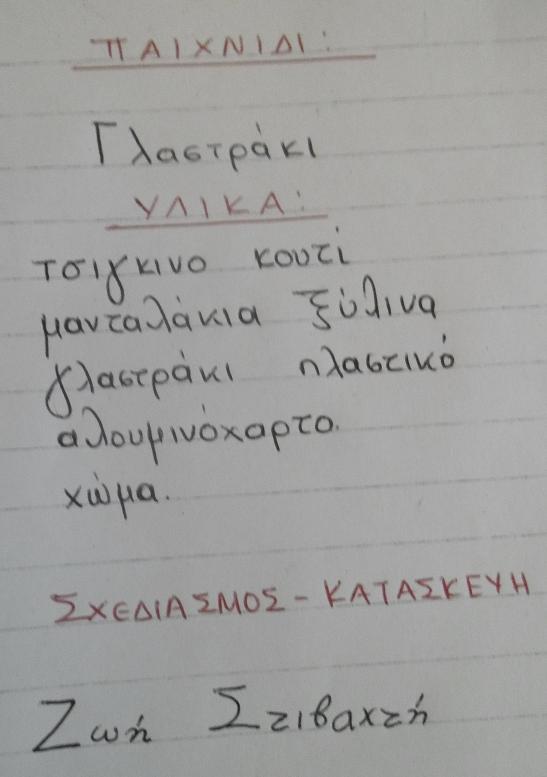 ΠΑΙΧΝΙΔΙ:
Γλαστράκι
ΥΛΙΚΑ:
τσιγκινο κουτί
μανταλάκια ξύλινα
γλαστράκι πλαστικό
αλουμινόχαρτο.
χώμα.
ΣΧΕΔΙΑΣΜΟΣ - ΚΑΤΑΣΚΕΥΗ
Ζωή Στιβαχτή